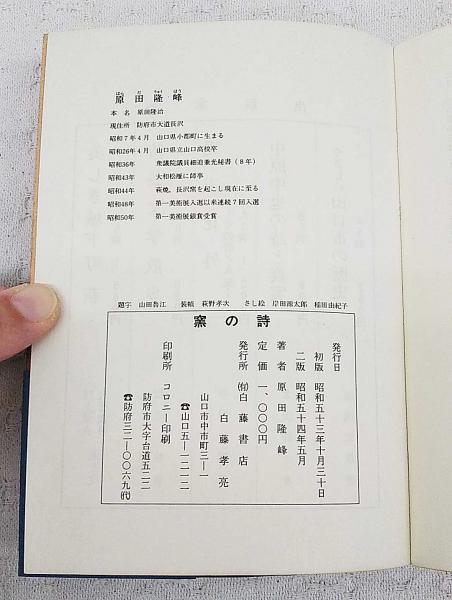 はら だ りゅう ほう
原田隆峰
本名 原田隆治
現住所 防府市大道長沢
昭和7年4月 山口県小郡町に生まる
昭和26年4月 山口県立山口高校卒
昭和36年 衆議院議員細迫兼光秘書(8年)
昭和43年 大和松緑に師事
昭和44年 萩焼、長沢窯を起こし現在に至る
昭和48年 第一美術展入選以来連続7回入選
昭和50年 第一美術展銀賞受賞
題字 山田魯江 装幀 萩野孝次 さし絵 岸田源太郎 稲田由紀子
窯の詩
発行日
初版 昭和五十三年十月三十日
二版 昭和五十四年五月
著者 原田隆峰
定価 一、〇〇〇円
発行所 (有)白藤書店
白藤孝亮
山口市中市町三―一
☎山口五―一二一二
印刷所 コロニー印刷
防府市大字台道五二二
☎防府三二―〇〇六九(代)